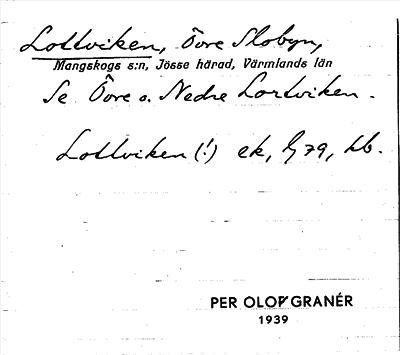 Lottviken, Övre Slobyn,
Mangskogs s:n, Jösse härad, Värmlands län
Se Övre o. Nedre Lortviken.
Lottviken (!) ek, 79, hb.
PER OLOF GRANÉR
1939